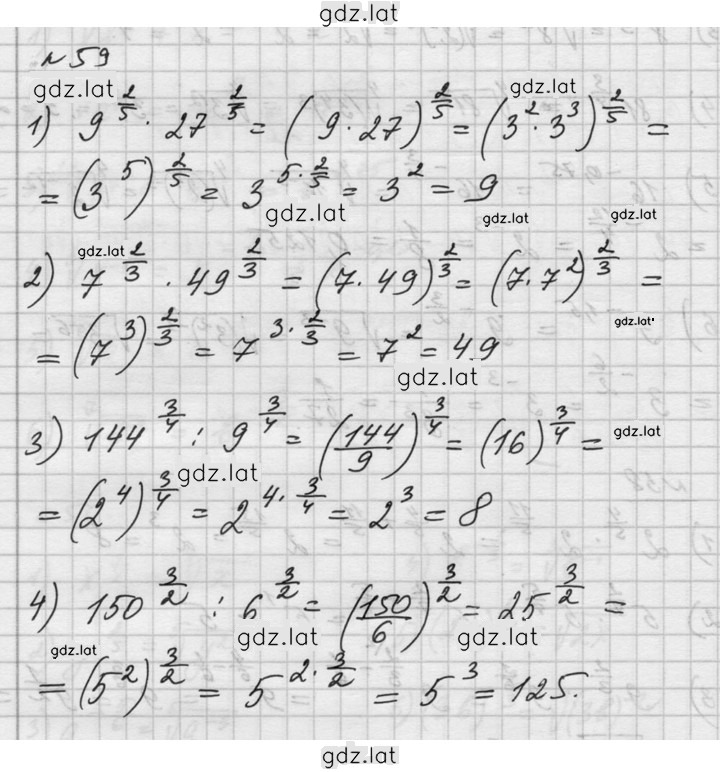 gdz.lat
№59
gdz.lat gdz.lat
1) 9^(2/5) · 27^(2/5) = (9·27)^(2/5) = (3^2·3^3)^(2/5) =
= (3^5)^(2/5) = 3^(5·2/5) = 3^2 = 9
gdz.lat gdz.lat gdz.lat
gdz.lat
2) 7^(2/3) · 49^(2/3) = (7·49)^(2/3) = (7·7^2)^(2/3) =
gdz.lat
= (7^3)^(2/3) = 7^(3·2/3) = 7^2 = 49
gdz.lat
3) 144^(3/4) : 9^(3/4) = (144/9)^(3/4) = (16)^(3/4) = gdz.lat
gdz.lat
= (2^4)^(3/4) = 2^(4·3/4) = 2^3 = 8
4) 150^(3/2) : 6^(3/2) = (150/6)^(3/2) = 25^(3/2) =
gdz.lat gdz.lat gdz.lat
= (5^2)^(3/2) = 5^(2·3/2) = 5^3 = 125.
gdz.lat